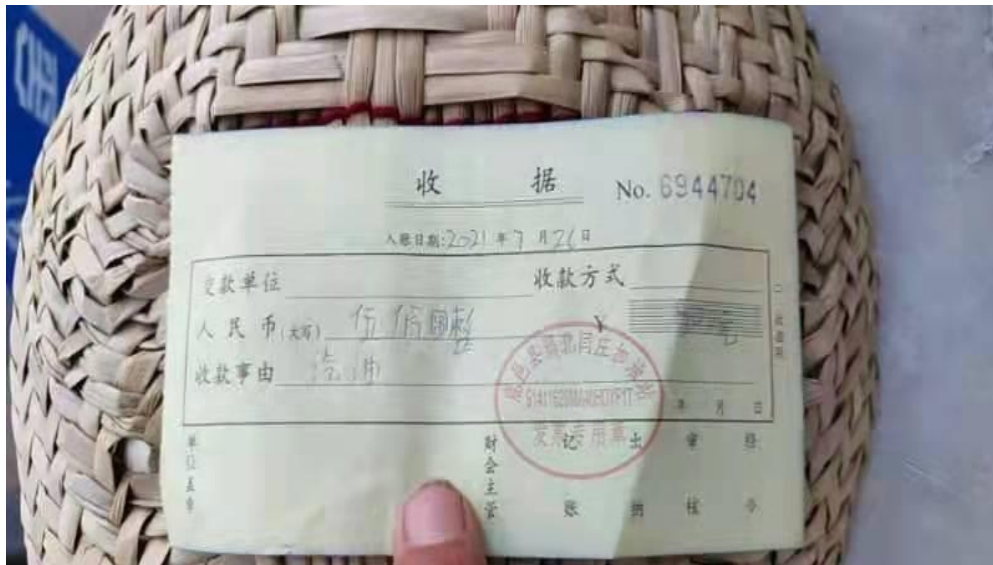 收 据 No. 6944704
入账日期:2021年7月26日
交款单位 收款方式
人民币(大写) 伍佰圆整 ¥ 元
收款事由 汽油
发票专用章
年 月 日
单位盖章 财会主管 记账 出纳 审核 经办